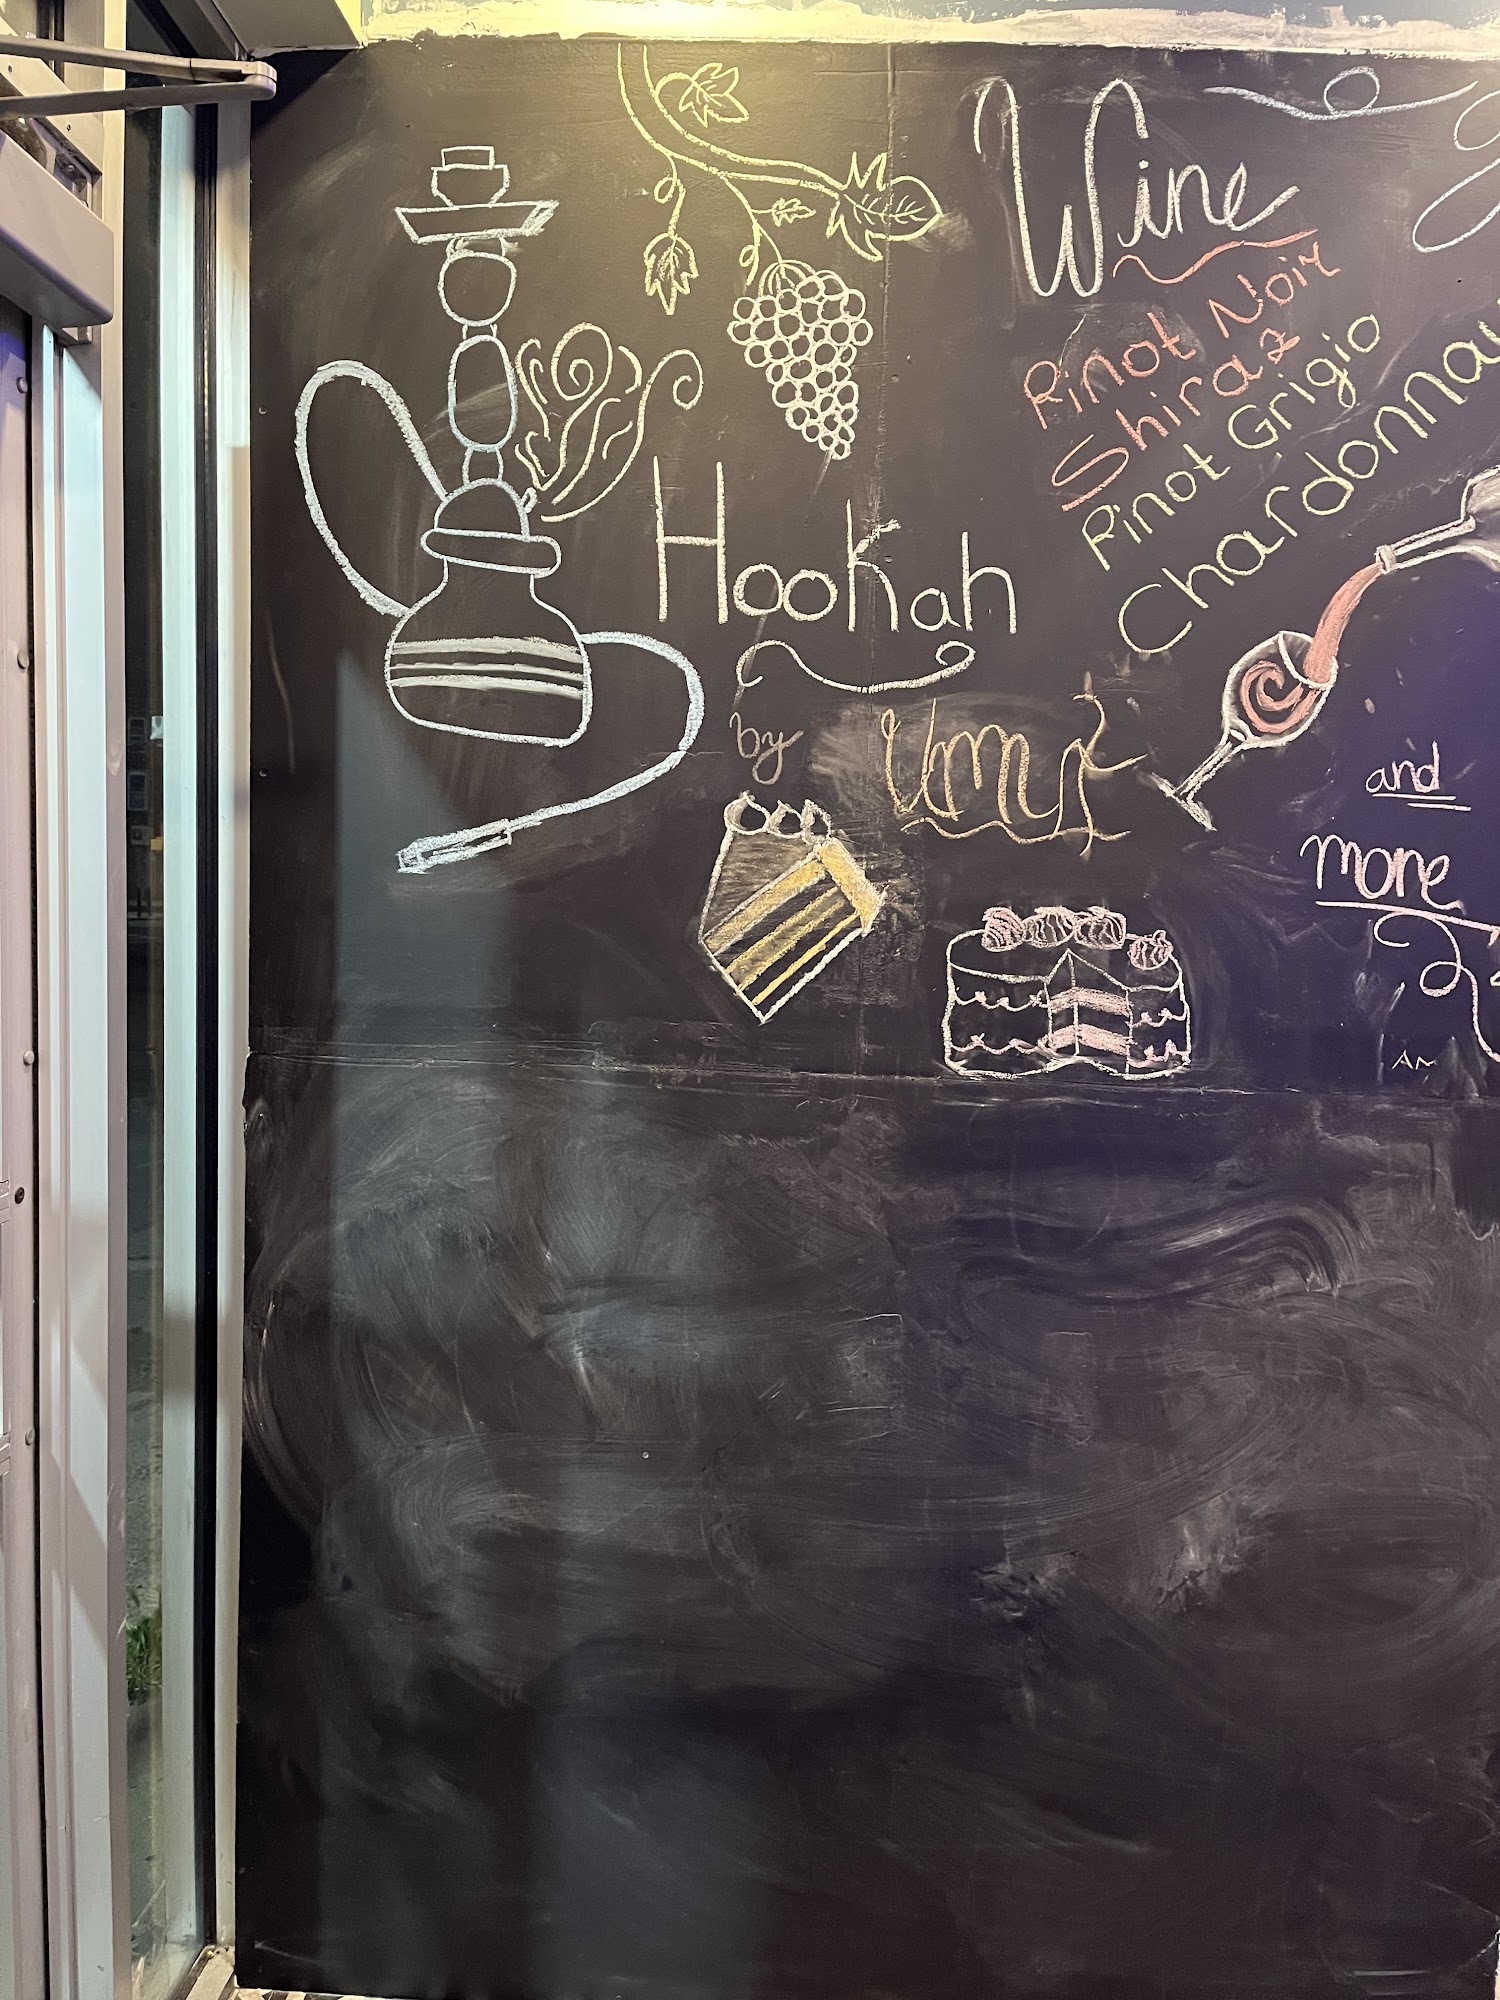 Wine
Pinot Noir
Shiraz
Pinot Grigio
Chardonnay
Hookah
by
and
more
AM